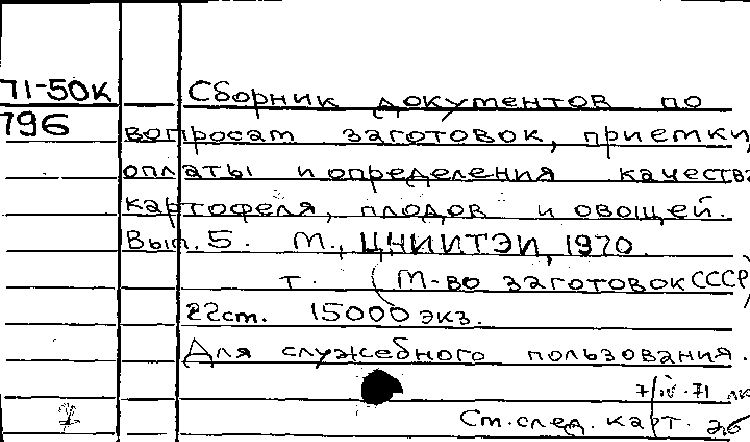 71-50к
796
Сборник документов по
вопросам заготовок, приемки,
оплаты и определения качества
картофеля, плодов и овощей.
Вып. 5. М., ЦНИИТЭИ, 1970.
т. (М-во заготовок СССР)
22 ст. 15000 экз.
Для служебного пользования.
7/IV-71
См. след. карт.